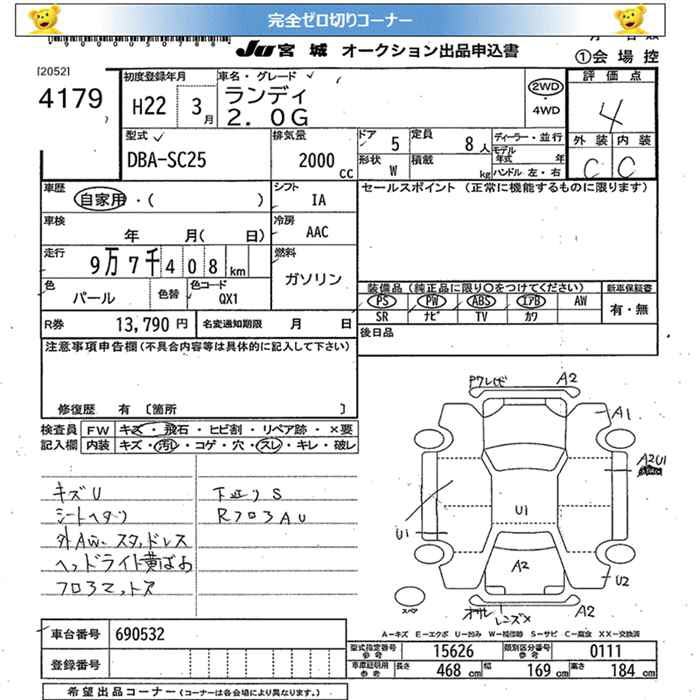 完全ゼロ切りコーナー
JU 宮城 オークション出品申込書
①会場控
[2052]
4179
初度登録年月
H22 3月
車名・グレード
ランディ
2.0G
2WD
・
4WD
評価点
4
外装 内装
C C
型式
DBA-SC25
排気量
2000 CC
ドア 5
定員 8人
形状 W
積載 kg
ディーラー・並行
モデル年式 年
ハンドル 左・右
車歴
自家用・( )
シフト
IA
セールスポイント (正常に機能するものに限ります)
車検
年 月( 日)
冷房
AAC
走行
9万7千408km
燃料
ガソリン
色
パール
色替
色コード
QX1
装備品 (純正品に限り○をつけてください)
新車保証書
PS PW ABS エアB AW
SR ナビ TV カワ
有・無
R券 13,790円
名変通知期限 月 日
後日品
注意事項申告欄 (不具合内容等は具体的に記入して下さい)
修復歴 有 〔箇所 〕
検査員記入欄
FW キズ・飛石・ヒビ割・リペア跡・×要
内装 キズ・汚れ・コゲ・穴・スレ・キレ・破レ
キズU
シートヘタリ
外AW、スタッドレス
ヘッドライト黄ばみ
フロアマットズレ
下廻りS
RフロアAU
A2
A1
A2U1
U1
U1
A2
U2
スペア
レンズ×
A2
A-キズ E-エクボ U-凹み W-補修跡 S-サビ C-腐食 XX-交換済
車台番号 690532
登録番号
型式指定番号 参考 15626
類別区分番号 参考 0111
車庫証明用 参考 長さ 468 cm 幅 169 cm 高さ 184 cm
希望出品コーナー (コーナーは各会場により異なります。)